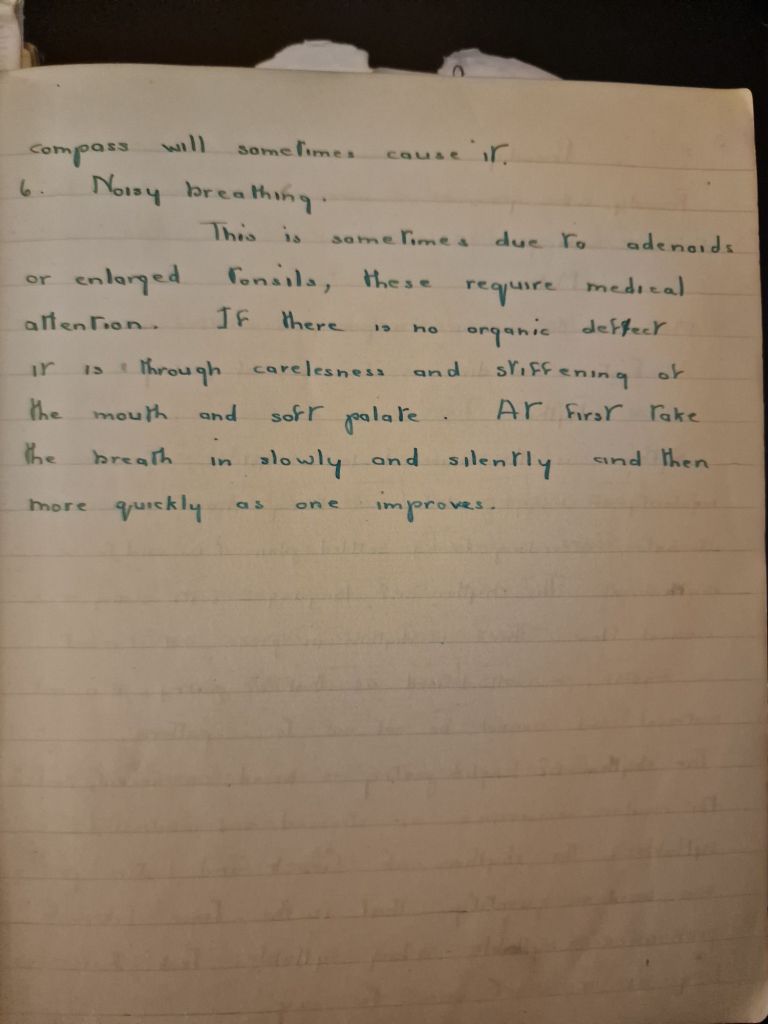 compass will sometimes cause it.
6. Noisy breathing.
This is sometimes due to adenoids
or enlarged tonsils, these require medical
attention. If there is no organic deffect
it is through carelesness and stiffening of
the mouth and soft palate. At first take
the breath in slowly and silently and then
more quickly as one improves.